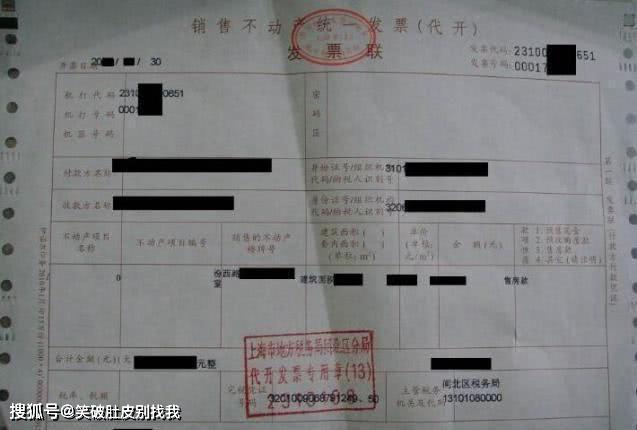 销售不动产统一发票(代开)
发票联
发票代码:23100 651
发票号码:00017
开票日期 20 / / 30
机打代码 2310 0651
机打号码 0001
机器号码
密码区
付款方名称
身份证号/组织机构
代码/纳税人识别号 3101
收款方名称
身份证号/组织机构
代码/纳税人识别号 3206
不动产项目
名称
不动产项目编号
销售的不动产
楼牌号
建筑面积( )
套内面积( )
(单位:m²)
单价
(单位:
元/m²)
金额(元)
款 1 预售定金
项 2 预收购房款
性 3 售房款
质 4 其它(请注明)
0
份西路
室
建筑面积
售房款
合计金额(元)(大
元整
上海市地方税务局闸北区分局
代开发票专用章(13)
税率、税额
完税凭证
号码
主管税务
机关及代码
闸北区税务局
13101080000
第一联 发票联(付款方付款凭证)
搜狐号@笑破肚皮别找我